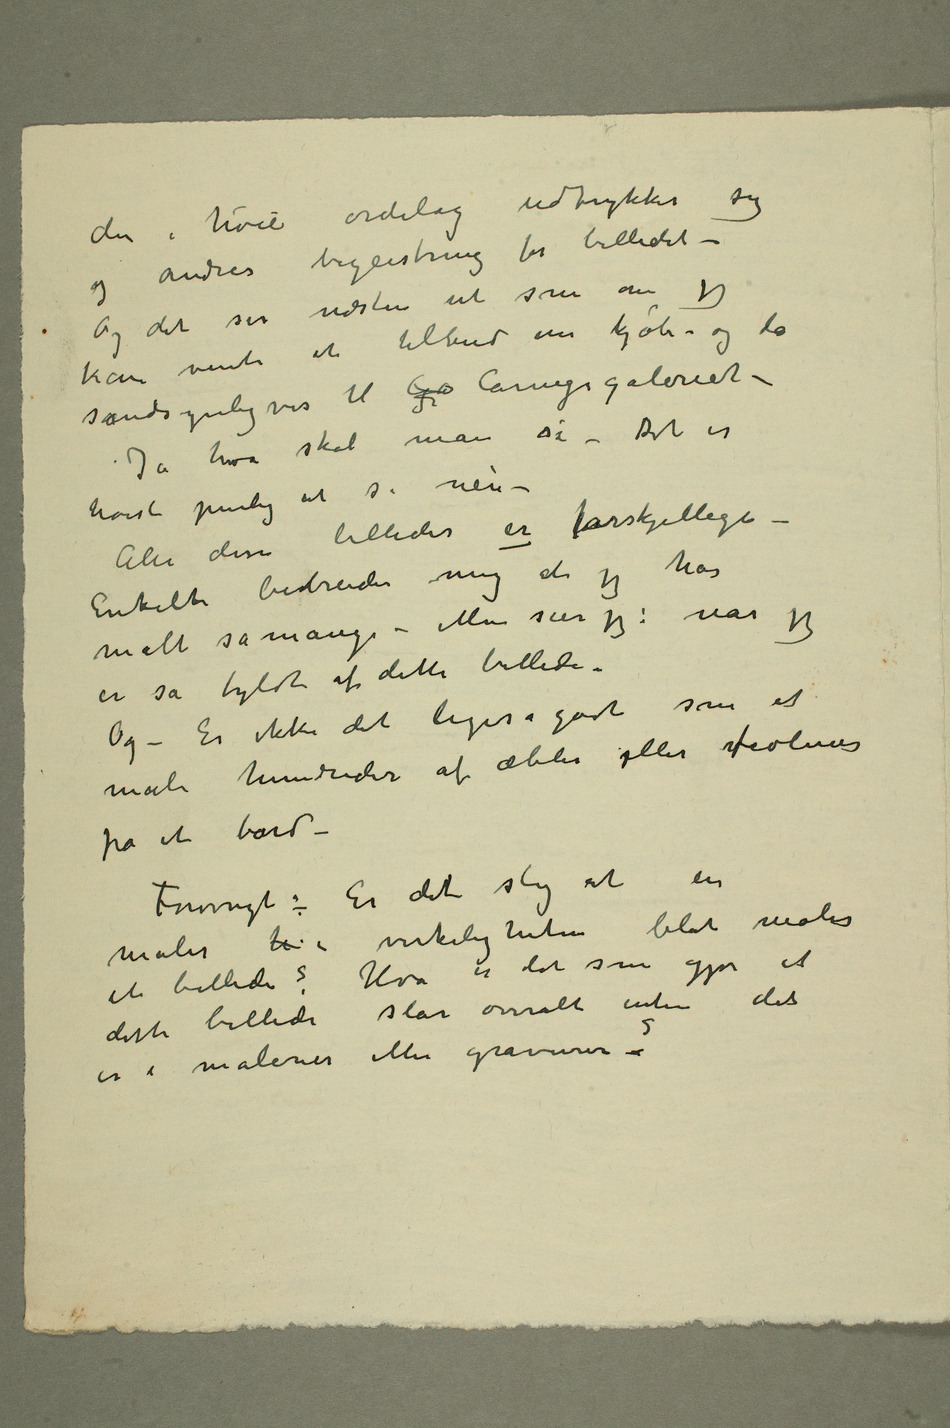 der i høie ordelag udtrykker sig
og andres begeistring for billedet –
Og det ser næsten ut som om jeg
kan vente et tilbud om kjøb – og da
sandsynligvis til Carnegigaleriet –
Ja hva skal man si – Det er
høist pinlig at si nei –
Alle disse billeder er forskjellige –
Enkelte bebreider mig at jeg har
malt så mange – Men sier jeg: når jeg
er så fyldt af dette billede –
Og – Er ikke det ligeså godt som at
male hundreder af æbler eller fioliner
på et bord –
Forøvrigt: Er det slig at en
maler i virkeligheten blot maler
et billede? Hva er det som gjør at
dette billede slår overalt enten det
er i malerier eller gravurer –?